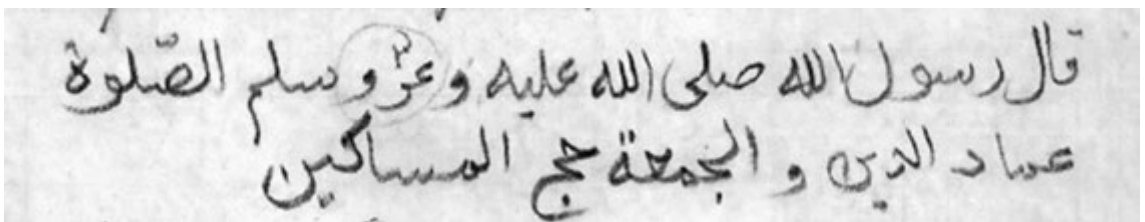 قال رسول الله صلى الله عليه وعز وسلم الصّلوة
عماد الدين و الجمعة حج المساكين